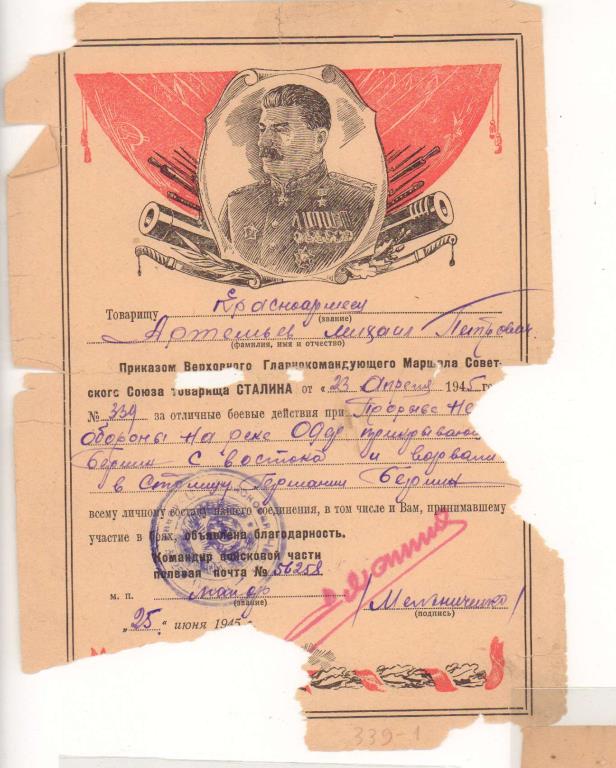 Товарищу Красноармеец
(звание)
Артемьев Михаил Петрович
(фамилия, имя и отчество)
Приказом Верховного Главнокомандующего Маршала Совет-
ского Союза товарища СТАЛИНА от „23 Апреля 1945 го
№ 339 за отличные боевые действия при Прорыве не
обороны на реке Одер прикрывающ
Берлин с востока и ворвали
в столицу Германии Берлин
всему личному составу нашего соединения, в том числе и Вам, принимавшему
участие в боях, объявлена благодарность.
Командир войсковой части
полевая почта № 56258
м. п. майор /Мельниченко/
(звание) (подпись)
„25" июня 1945 г
339-1